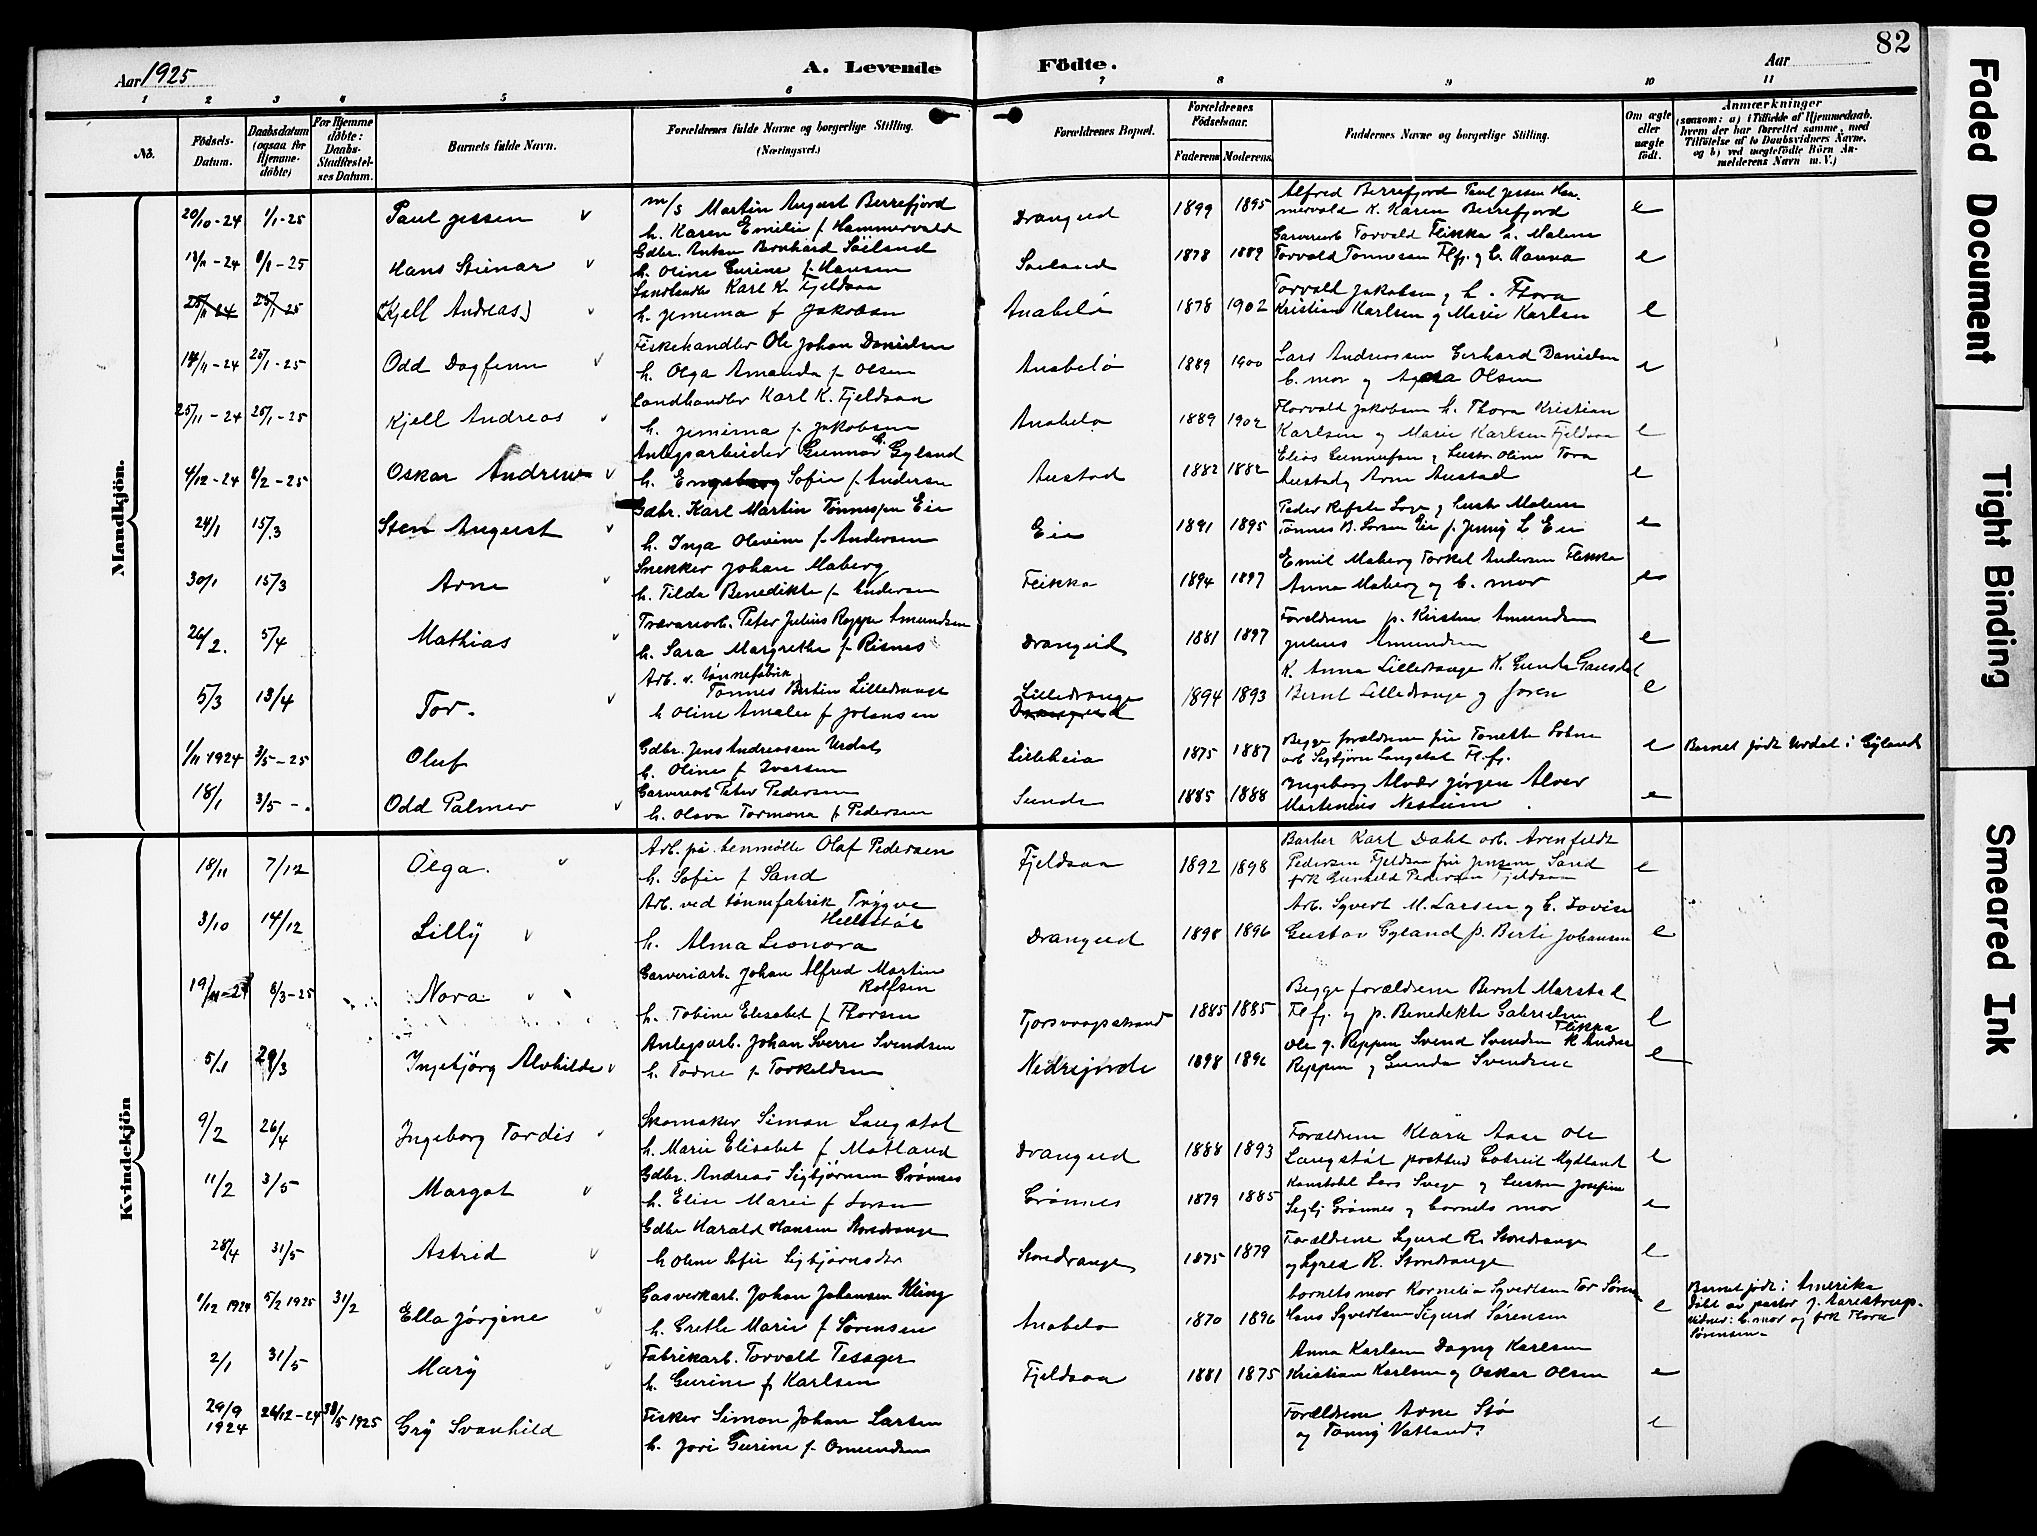 Aar 1925
A. Levende
Födte.
Aar
82
1 2 3 4 5 6 7 8 9 10 11
No.
Födsels-
Datum.
Daabsdatum
(ogsaa for
Hjemme-
döbte)
For Hjemme
döbte:
Daabs-
Stadfæstel-
ses Datum.
Barnets fulde Navn.
Forældrenes fulde Navne og borgerlige Stilling.
(Næringsvei.)
Forældrenes Bopæl.
Forældrenes
Födselsaar.
Faderens Moderens
Faddernes Navne og borgerlige Stilling.
Om ægte
eller
uægte
födt.
Anmærkninger
(saasom: a) i Tilfælde af Hjemmedaab,
hvem der har forrettet samme, med
Tilföielse af to Daabsvidners Navne,
og b) ved uægtefödte Börn An-
melderens Navn m. V.)
Mandkjön.
20/10-24 1/1-25 Paul Jessen v
m/s Martin August Berrefjord
h. Karen Emilie f. Hammervold
Drangeid 1899 1895
Alfred Berrefjord Paul Jessen Ham-
mervold K. Karen Berrefjord
e
8/1-25 Hans Steinar v
Gdbr. Anton Bernhard Söiland
h. Oline Gurine f. Hansen
Soeland 1878 1889
Garveriarb. Torvald Flikka h. Malene
Torvald Tönnesen Flfj. og h. Hanna
e
25/11-24 25/1-25 (Kjell Andreas) v
Landhandler Karl K. Fjeldsaa
h. Jemima f Jakobsen
Anabelö 1878 1902
Torvald Jakobsen og h. Thora
Kristian Karlsen og Marie Karlsen
e
18/11-24 25/1-25 Odd Dagfinn v
Fiskehandler Ole Johan Danielsen
h. Olga Amanda f. Olsen
Anabelö 1889 1900
Lars Andreassen Gerhard Danielsen
b. mor og Agna Olsen
e
25/11-24 25/1-25 Kjell Andreas v
Landhandler Karl K. Fjeldsaa
h. Jemima f. Jakobsen
Anabelö 1889 1902
Thorvald Jakobsen h. Thora Kristian
Karlsen og Marie Karlsen Fjeldsaa
e
4/12-24 8/2-25 Oskar Andrew v
Anlegsarbeider Gunnar G. Gyland
h. Sofie f. Andersen
Austad 1882 1882
Elias Gunnufsen og hustr. Oline Tora
Austad, Arne Austad
e
24/1 15/3 Sten August v
Gdbr. Karl Martin Tönnessen Eie
h. Inga Olevine f. Andersen
Eie 1891 1895
Peder Refste Loge og hustr. Malene
Tönnes B. Larsen Eie p. Jenny L Eie
e
30/1 15/3 Arne v
Snekker Johan Maberg
h. Tilda Benedikte f. Andersen
Flikka 1894 1897
Emil Maberg Torkel Andersen Flikka
Anna Maberg og b. mor
e
26/2. 5/4 Mathias v
Peter Julius Reppe Amundsen
h. Sara Margrethe f. Risnes
Drangeid 1881 1897
Forældrene p. Kirsten Amundsen
Julius Amundsen
e
5/3 13/4 Tor. v
Arb. v. tønnefabrik
Tönnes Bertin Lilledrange
h Oline Amalie f Johansen
Lilledrange
Drangeid
1894 1893
K. Anna Lilledrange K. Gunda Gausdal
Bernt Lilledrange og faren
e
1/11 1924 3/5-25 Oluf
Gdbr. Jens Andreassen Urdal
h. Oline f Iversen
Lilleheia 1875 1887
Begge forældrene fru Tonette Lohne
arb Sigbjørn Langstøl Fl.fj.
e Barnet født Urdal i Gyland
18/1 3/5 -. Odd Palmer v
Garveriarb Peter Pedersen
h. Olava Tormona f Pedersen
Sunde 1885 1888
Ingeborg Alver Jørgen Alver
Martenius Nesheim.
e
Kvindekjön
18/11 7/12 Olga. v
Arb. på benmølle Olaf Pedersen
h. Sofie f Sand
Fjeldsaa 1892 1898
Barber Karl Dahl arb. Arenfeldt
Pedersen Fjeldsaa fru Jensine Sand
frk Gunhild Pedersen Fjeldsaa
e
3/10 14/12 Lilly v
Arb. ved tønnefabrik Trygve
Hellestøl
h. Alma Leonora
Drangeid 1898 1896
Arb. Syvert M. Larsen og h. Lovise
Gustav Gyland p. Berti Johansen
e
19/11-24 8/3-25 Nora v
Garveriarb. Johan Alfred Martin
Rolfsen
h. Tobine Elisabet f Thorsen
Tjorsvaagstrand 1885 1885
Begge forældrene Bernt Marstad
Flfj. og p. Benedikte Gabrielsen
Flikka
e
5/1 29/3 Ingebjørg Alvhilde v
Anlegsarb. Johan Sverre Svendsen
h. Todne f. Torkildsen
Nedrejorde 1898 1896
Ole J. Reppen Svend Svendsen K Andrea
Reppen og Gunda Svendsen
e
9/2 26/4 Ingeborg Tordis v
Skomaker Simon Langstøl
h. Marie Elisabet f Motland
Drangeid 1888 1893
Forældrene Klara Aase Ole
Langstøl postbud Gotreit Mydland
e
11/2 3/5 Margot v
Gdbr. Andreas Sigbjørnsen Grönnes
h. Elise Marie f Larsen
Grönnes 1879 1885
Lars Svege og hustru Josefine
Sigbj Grönnes og barnets mor
e
28/4 31/5 Astrid v
Gdbr Harald Hansen Stordrange
h Oline Sofie Sigbjørnsdtr
Stordrange 1875 1879
Forældrene Sigurd R. Stordrange
og Signe R. Stordrange
e
1/12 1924 5/2 1925 31/2 Ella Jørgine v
Gasverkarb. Johan Johansen Kling
h. Grethe Marie f Sørensen
Anabelø 1870 1896
barnets mor Kornelia Syvertsen Tor Sørensen
Hans Syvertsen Sigurd Sørensen
e
Barnet født i Amerika
døbt av pastor J. Aarestrup.
vidner: b. mor og frk Thora
Sørensen
2/1 31/5 Mary v
Fabrikarb. Torvald Tesager
h. Gurine f Karlsen
Fjeldsaa 1881 1875
Anna Karlsen Dagny Karlsen
Kristian Karlsen og Oskar Olsen
e
29/9
1924
26/12-24 31/5 1925 Gry Svanhild
Fisker Simon Johan Larsen
h. Jovi Gurine f. Omundsen
Forældrene Arne Stø
og Tonny Vatland.
e
Faded Document
Tight Binding
Smeared Ink